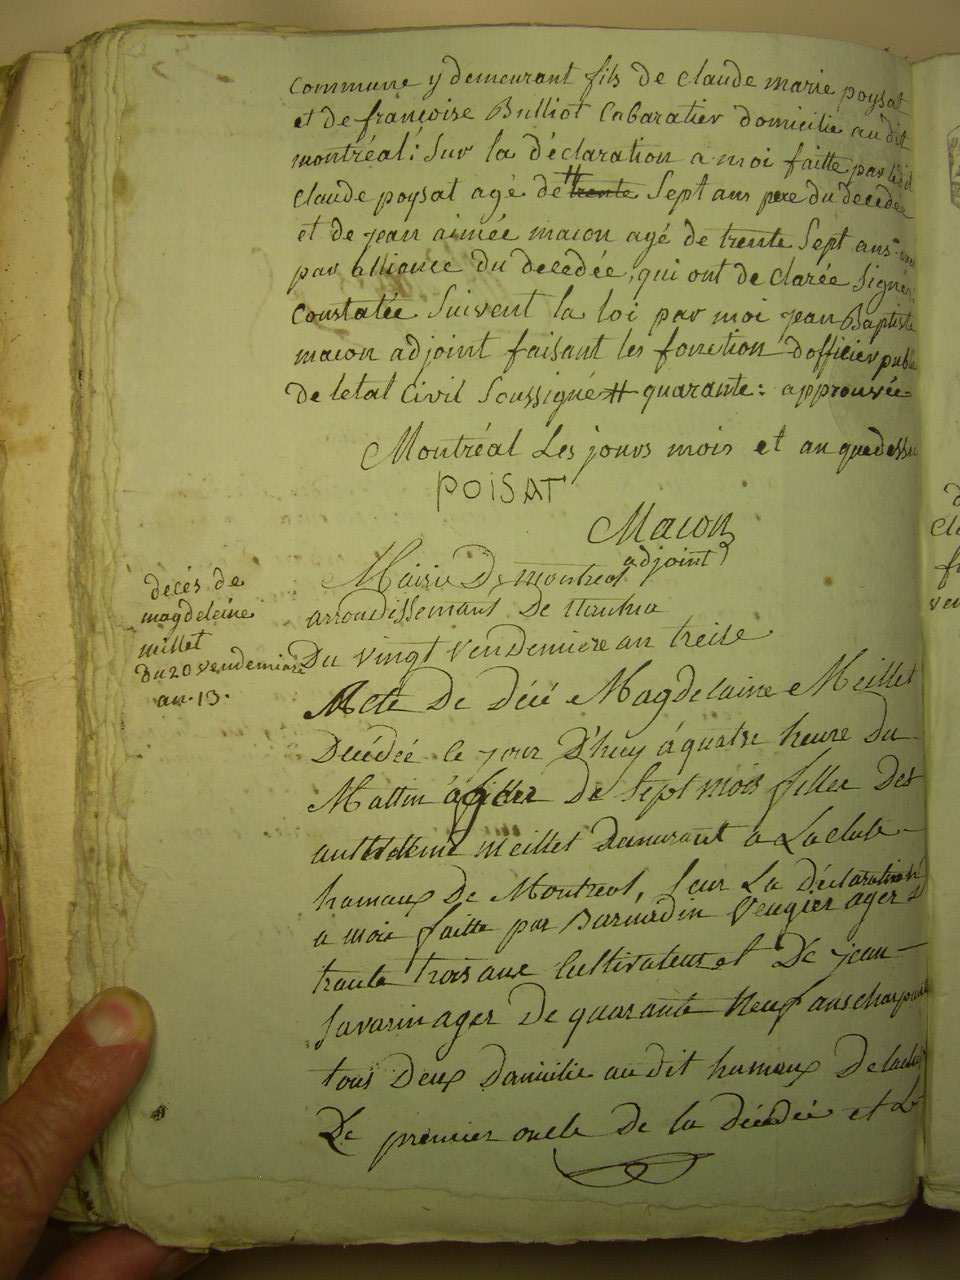 commune y demeurant fils de claude marie poysat
et de françoise Bulliot Cabaratier domicilie au dit
montréal: Sur la déclaration a moi faitte par ledit
Claude poysat agé de # trente Sept ans pere du decedée
et de jean aimée macon agé de trente Sept ans
par alliance du decedée, qui ont de clarée Signér
Constatée Suivent la loi par moi jean Baptiste
macon adjoint faisant les fonction d'officier public
de letat Civil Soussigné # quarante: approuvée
Montréal Les jours mois et an que dessu
POISAT
Macon
adjoint
decés de
magdeleine
millet
Du 20 vendemiaire
an. 13.
Mairie De montreal
arroudissemant De nantua
Du vingt Vendemiere an treise
Acte De Décé Magdelaine Meillet
Decédée le jour D'huy á quatre heure Du
Mattin De Sept mois fillee Des
meillet Damurant a La
hamaux De Montreal, Seur La Déclaration
a moi faitte par Barnardin Vengier ager
trante trois ans Cultivateur et De jean
Savarin ager De quarante Neuf ans
tous Deux Domicilie au dit hamaux
Le premier oncle De la Décedée et Le